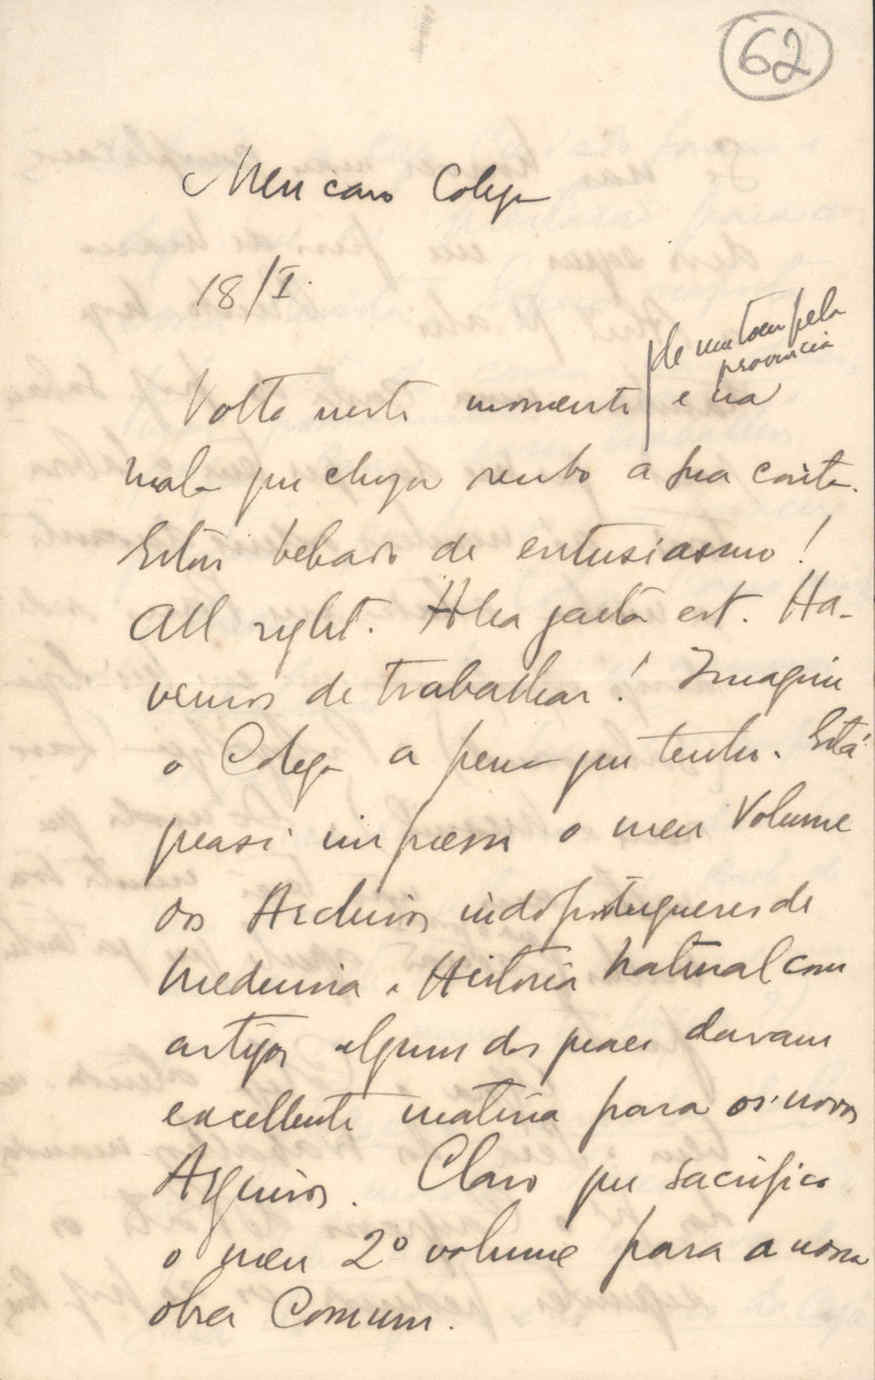 62
Meu caro Colega
18/I.
de um tour pela
provincia
Volto neste momento | e na
mala que chega recebo a sua carta.
Estou bebado de entusiasmo!
All right. Alea jacta est. Ha-
vemos de trabalhar! Imagine
o Colega a pena que tenho. Está
quasi impresso o meu Volume
dos Archivos indoportuguezes de
Medicina e Historia Natural com
artigos alguns dos quaes davam
excellente materia para os novos
Arquivos. Claro que sacrifico
o meu 2º volume para a nossa
obra Comum.